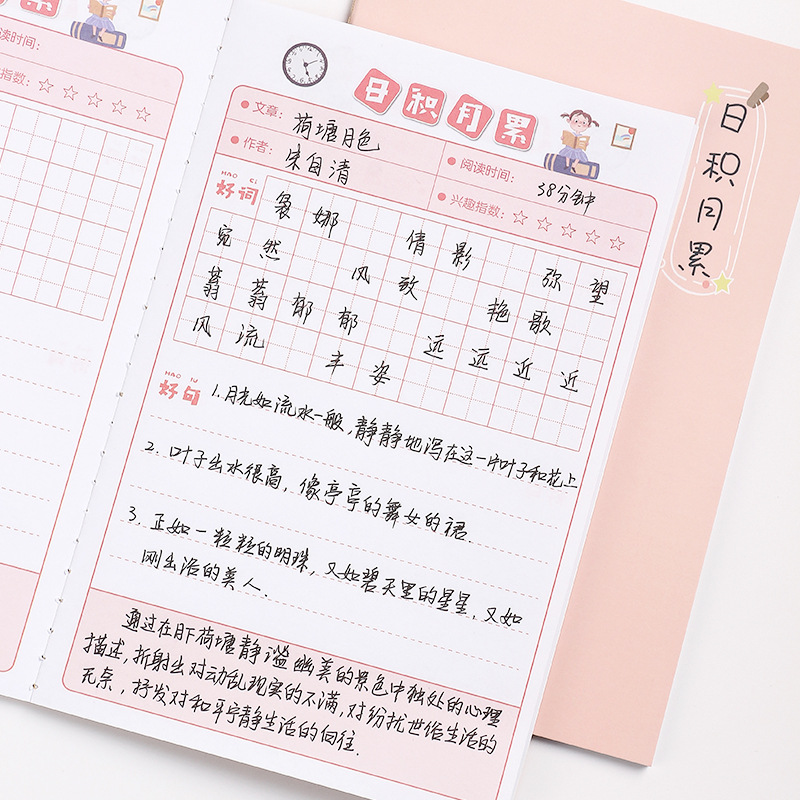 读时间：
指数：
日积月累
文章：荷塘月色
作者：宋自清
阅读时间：38分钟
兴趣指数：
HAO CI
好词
袅娜 倩影 弥望
宛然 风致 艳歌
蓊蓊郁郁 远远近近
风流 丰姿
HAO JU
好句
1.月光如流水一般,静静地泻在这一片叶子和花上
2.叶子出水很高,像亭亭的舞女的裙.
3.正如一粒粒的明珠,又如碧天里的星星,又如
刚出浴的美人.
通过在月下荷塘静谧幽美的景色中独处的心理
描述,折射出对动乱现实的不满,对纷扰世俗生活的
无奈,抒发对和平宁静生活的向往.
日积月累